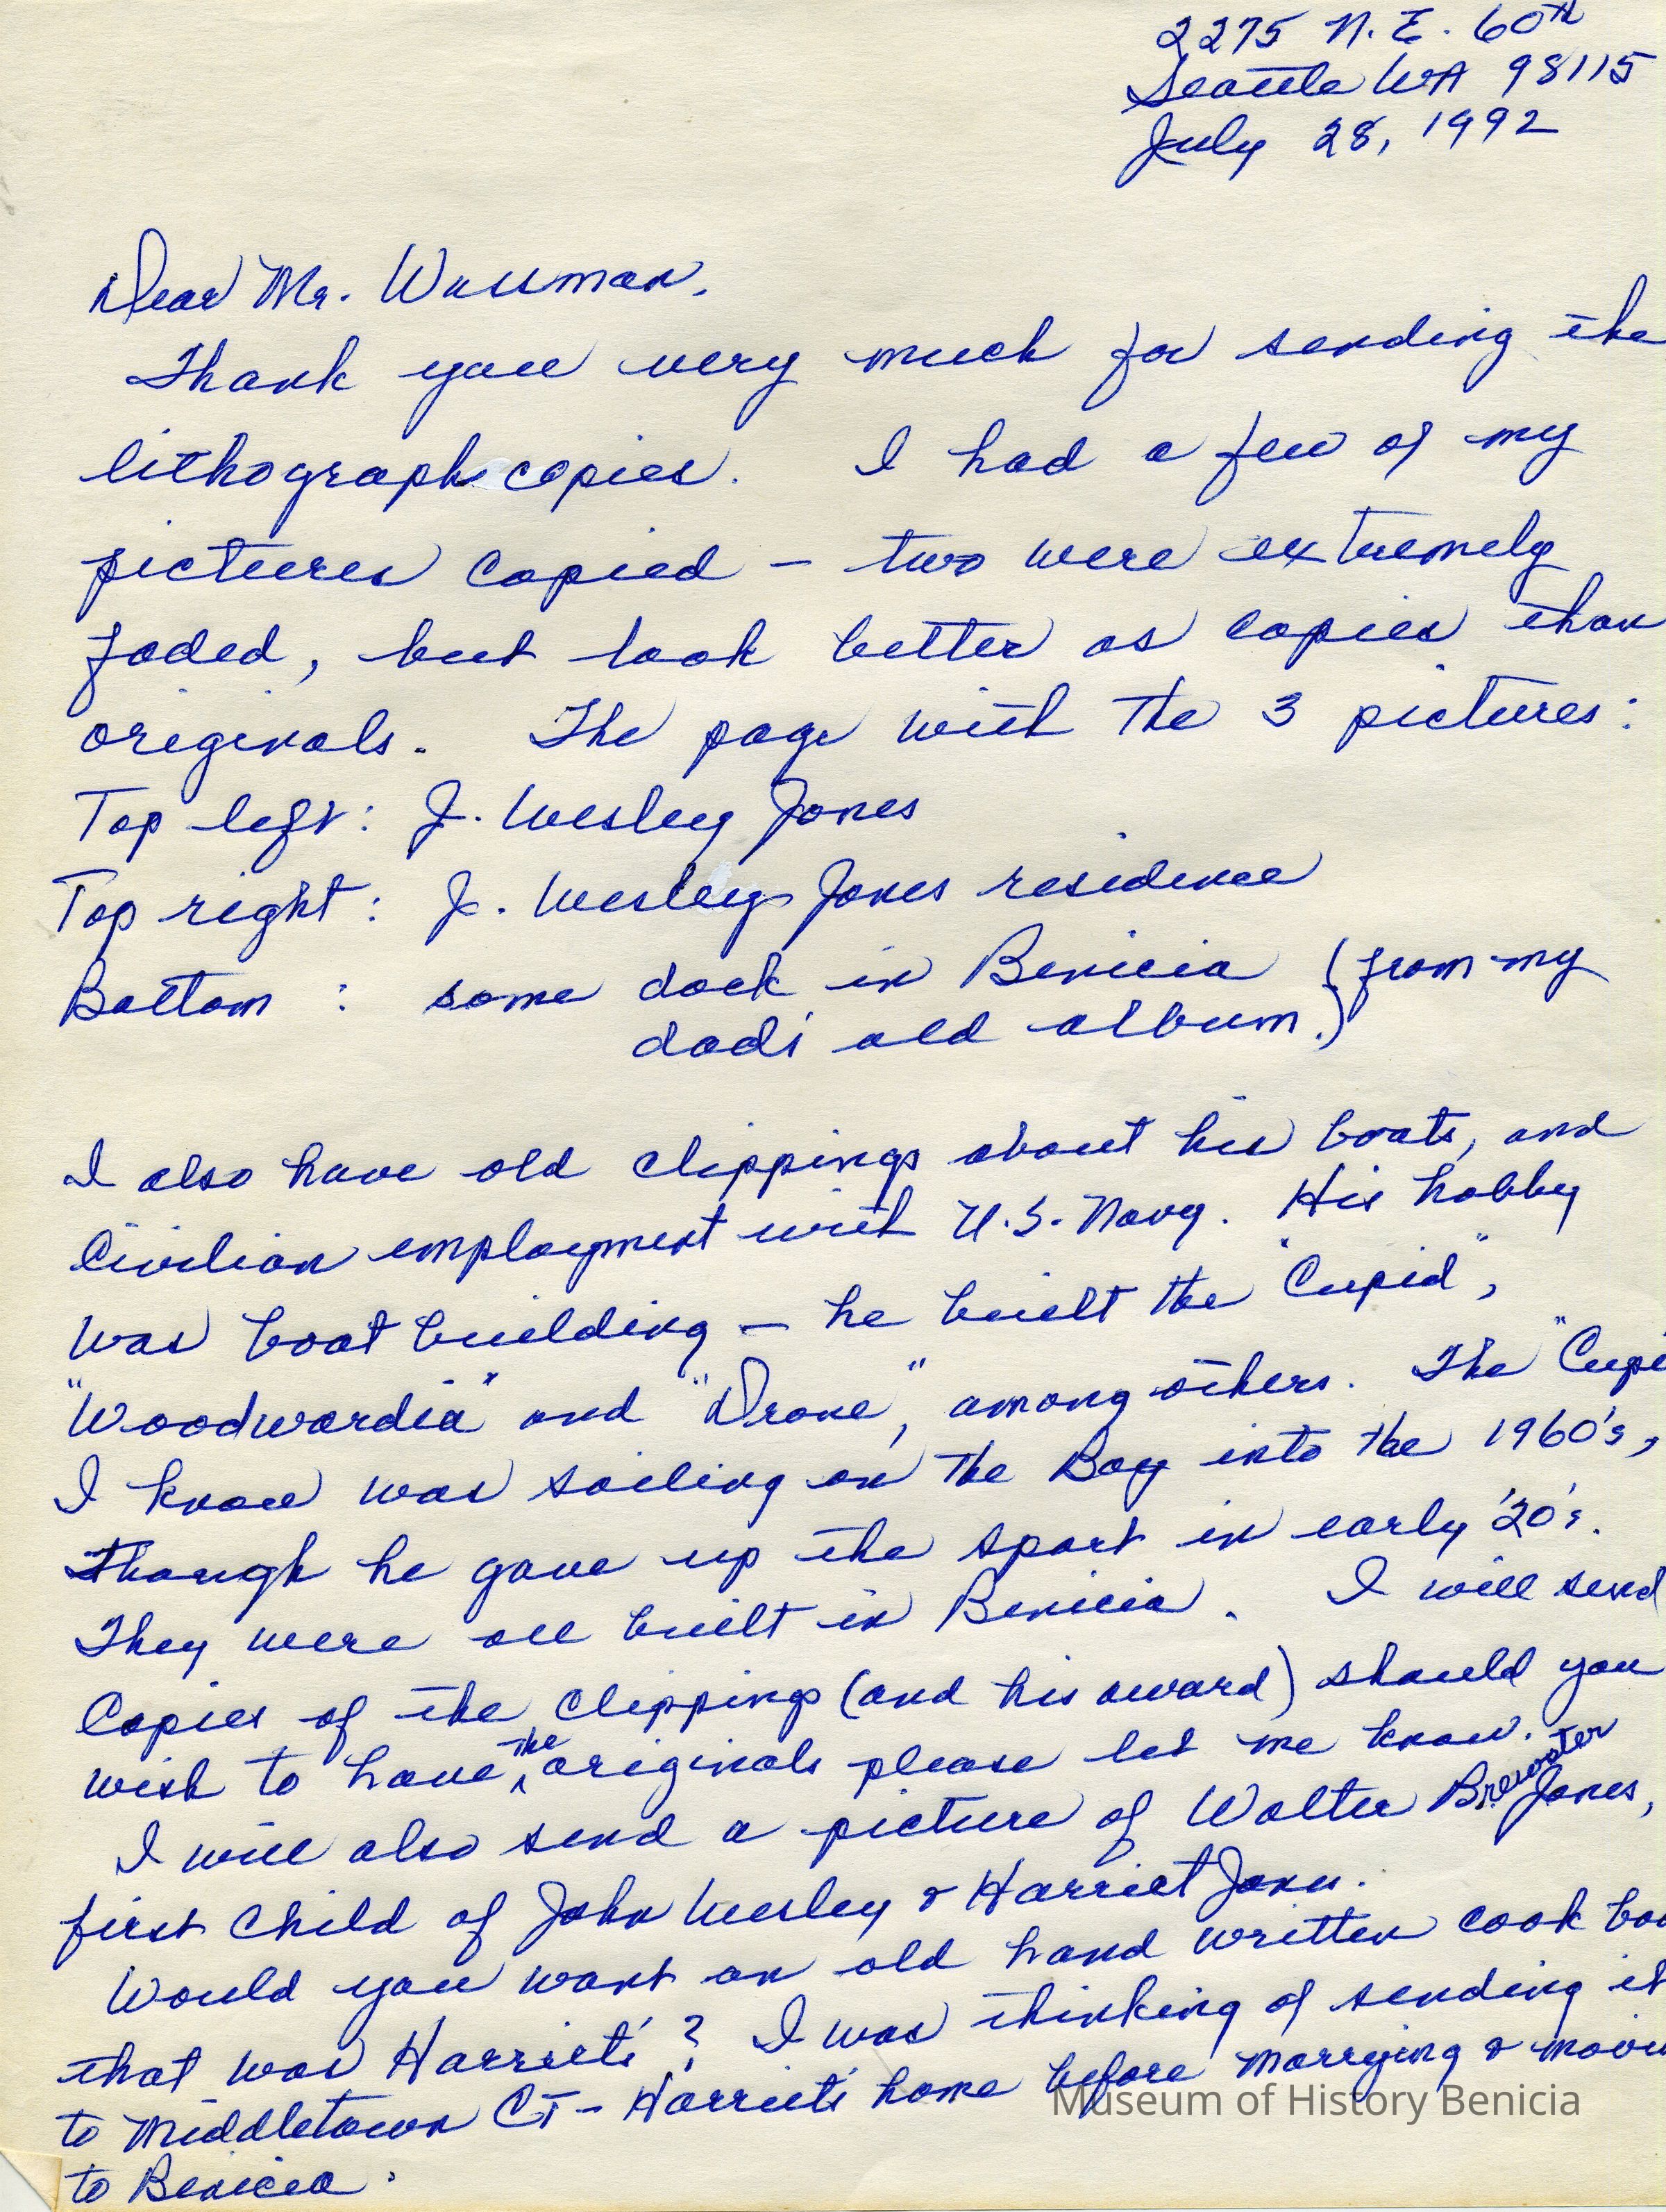 2275 N.E. 60th
Seattle WA 98115
July 28, 1992
Dear Mr. Wussman,
Thank you very much for sending the
lithograph copies. I had a few of my
pictures copied - two were extremely
faded, but look better as copies than
originals. The page with the 3 pictures:
Top left: J. Wesley Jones
Top right: J. Wesley Jones residence
Bottom : some dock in Benicia (from my
dad's old album.)
I also have old clippings about his boats, and
Civilian employment with U.S. Navy. His hobby
was boat building - he built the "Cupid",
"Woodwardia" and "Drone", among others. The "Cupi
I know was sailing on the Bay into the 1960's,
though he gave up the sport in early '20's.
They were all built in Benicia. I will send
Copies of the clippings (and his award) should you
wish to have, the originals please let me know.
I will also send a picture of Walter Brewster Jones,
first child of John Wesley & Harriet Jones.
Would you want an old hand written cook boo
that was Harriet's? I was thinking of sending it
to Middletown CT - Harriet's home before marrying & movin
to Benicia.
Museum of History Benicia